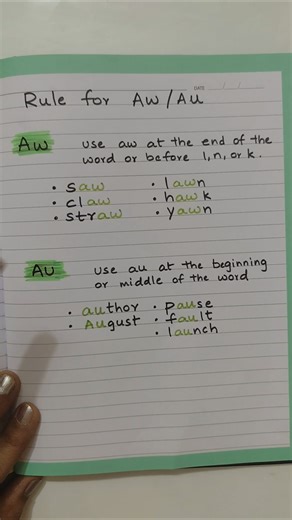 DATE / /
Rule for Aw/Au
Aw use aw at the end of the
word or before l, n, or k.
• saw • lawn
• claw • hawk
• straw • yawn
Au use au at the beginning
or middle of the word
• author • pause
• August • fault
• launch